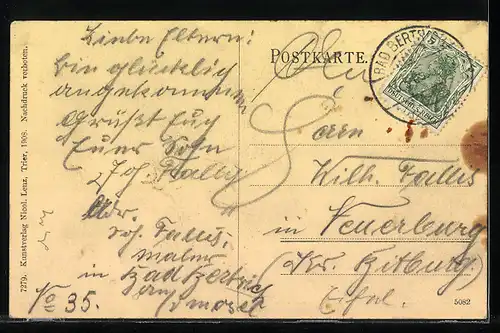 POSTKARTE.
BAD BERTRICH
Liebe Eltern!
bin glücklich
angekommen
Grüßt Euch
Euer Sohn
Joh. Fallis
Adr.
Joh. Fallis,
maler
in Bad Bertrich
an d mosel
No 35.
Herrn
Wilh. Fallis
in Neuerburg
(Kr. Bitburg)
Eifel.
5082
7279. Kunstverlag Nicol. Lenz, Trier, 1908. Nachdruck verboten.